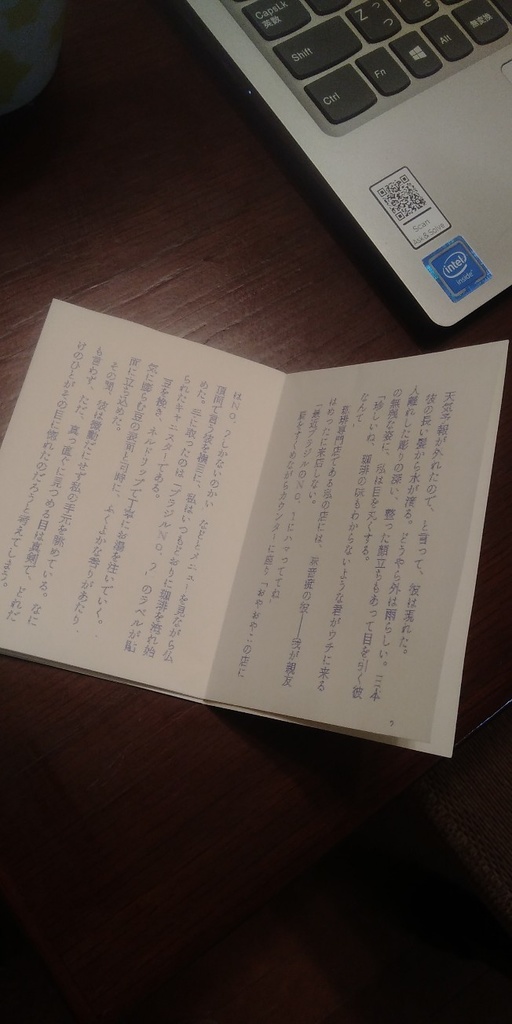 CapsLk
英数
Shift
Z
つ
っ
Ctrl
Fn
Alt
無変換
Scan
Ask&Solve
intel
inside
天気予報が外れたので、と言って、彼は現れた。
彼の長い髪から水が滴る。どうやら外は雨らしい。三本
人離れした彫りの深い、整った顔立ちもあって目を引く彼
の無残な姿に、私は目を丸くする。
「珍しいね、珈琲の味もわからないような君がウチに来る
なんて」
珈琲専門店である私の店には、
はめったに来店しない。
「最近ブラジルのNO.1にハマっててね」
髪をすくめながらカウンターに座り「おやおや…この店に
はNO.2しかないのかい
頂面で言う彼を横目に、私はいつもどおりに珈琲を淹れ始
めた。手に取ったのは「ブラジルNO.2」のラベルが貼
られたキャニスターである。
豆を挽き、ネルドリップで丁寧にお湯を注いていく。
気に膨らむ豆の表面と同時に、ふくよかな香りがあたり一
面に立ち込めた。
その間、彼は微動だにせず私の手元を眺めている。なに
も言わず、ただ、真っ直ぐに見つめる目は真剣で、どれだ
けのひとがその目に惚れたのだろうと考えてしまう。